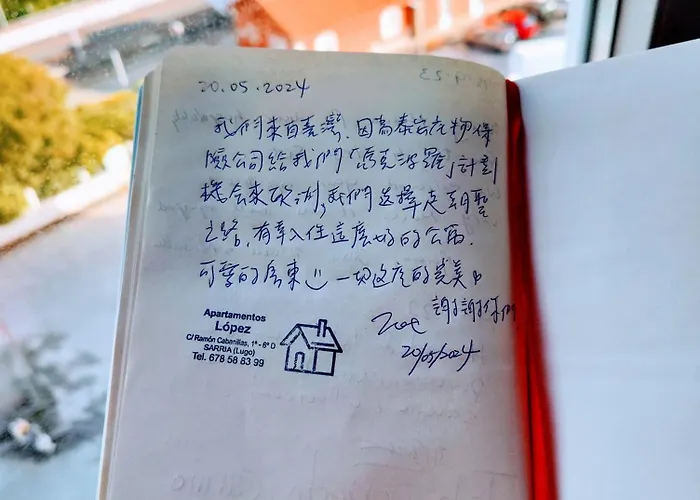 20.05.2024
我們來自臺灣.因為泰安產物保
險公司給我們「馬克波羅」計劃
機會來歐洲,我們選擇走朝聖
之路,有幸入住這麼好的公寓.
可愛的房東 一切這麼的完美。
謝謝你們
Zoe
20/05/2024
Apartamentos
López
C/ Ramón Cabanillas, 1ª - 6º D
SARRIA (Lugo)
Tel. 678 58 83 99